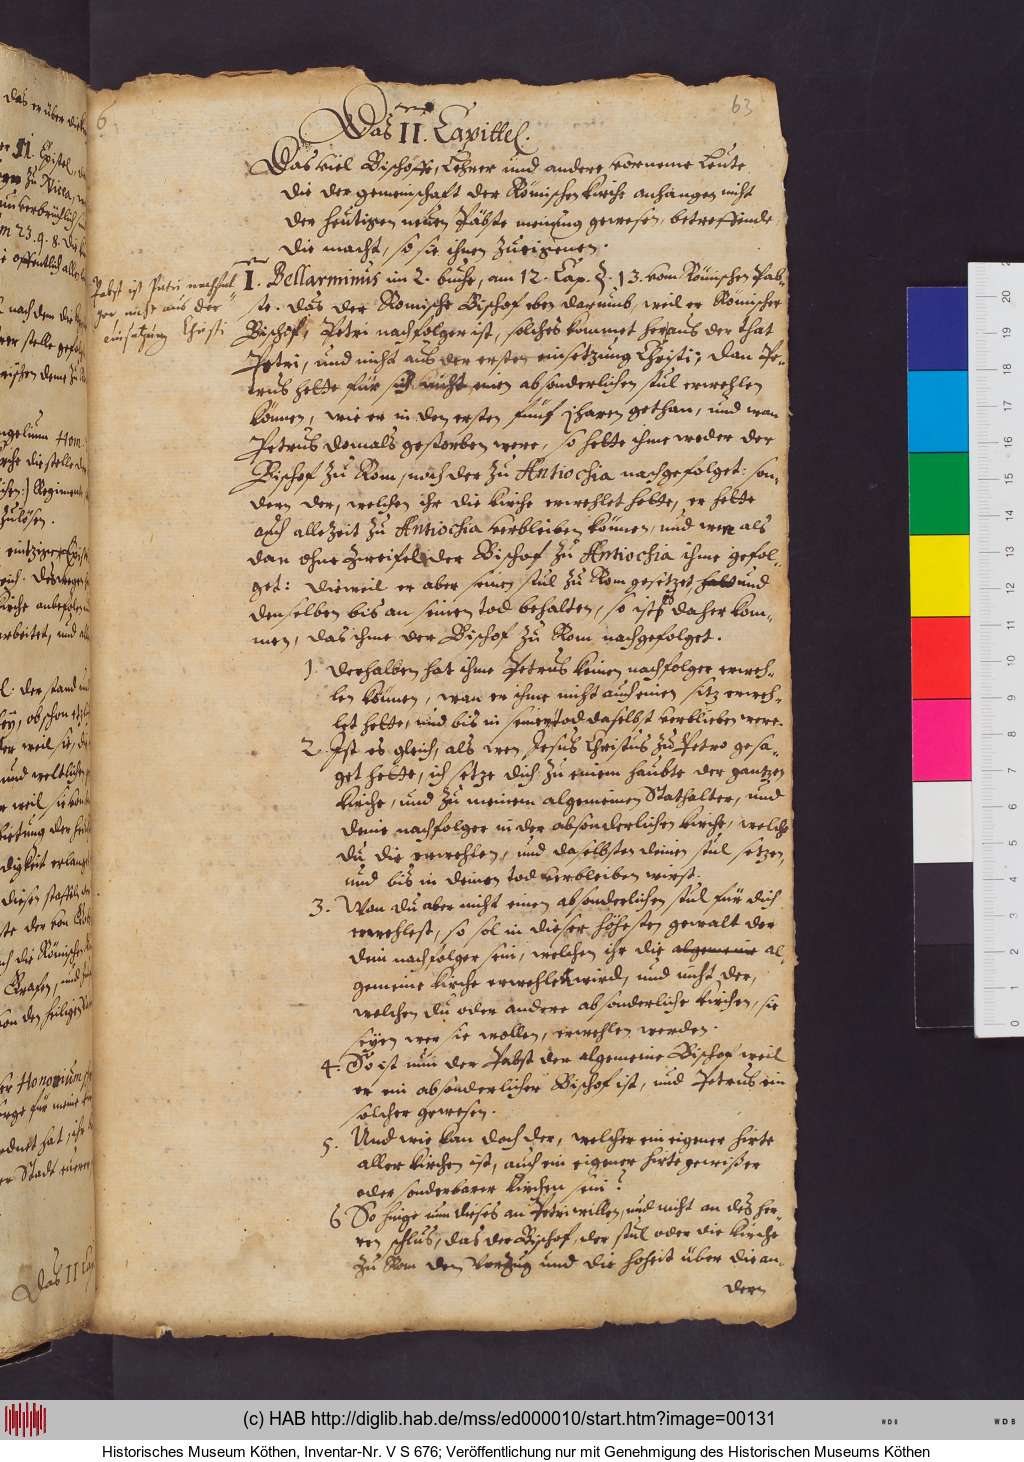 6.
63
Das II. Capittel.
Das viel Bischoffe, Lehrer und andere vorneme Leute
die der gemeinschaft der Römischen kirche anhangen nicht
der heutigen neuen Päbste meinung gewesen, betreffende
die macht, so sie ihnen zueigenen.
Pabst ist Petri nachfol-
ger nicht aus der
einsatzung Christi
I. Bellarminus im 2. buche, am 12. Cap. §. 13. vom Römischen Pab-
ste. das der Römische Bischof eben darumb, weil er Römischer
Bischof, Petri nachfolger ist, solches kommet heraus der that
Petri, und nicht aus der ersten einsetzung Christi; dan Pe-
trus hette für sich nicht einen absonderlichen stul erwehlen
können, wie er in den ersten fünf jharen gethan, und wan
Petrus domals gestorben were, so hette ihme weder der
Bischof zu Rom, noch der zu Antiochia nachgefolget: son-
dern der, welchen ihr die kirche erwehlet hette, er hette
auch allezeit zu Antiochia verbleiben können, und were als
dan ohne zweifel der Bischof zu Antiochia ihme gefol-
get: dieweil er aber seinen stul zu Rom gesetzet und
denselben bis an seinen tod behalten, so ists daher kom-
men, das ihme der Bischof zu Rom nachgefolget.
1. derhalben hat ihme Petrus keinen nachfolger erweh-
len können, wan er ihme nicht auch einen sitz erweh-
let hette, und bis in seinen tod daselbst verblieben were.
2. Ist es gleich, als wen Jesus Christus zu Petro gesa-
get hette, ich setze dich zu einem haubte der gantzen
kirche, und zu meinem algemeinen Stathalter, und
deine nachfolger in der absonderlichen kirche, welche
du dir erwehlen, und daselbsten deinen stul setzen,
und bis in deinen tod verbleiben wirst.
3. Wan du aber nicht einen absonderlichen stul für dich
erwehlest, so sol in dieser höhesten gewalt der
dein nachfolger sein, welchen ihr die algemeine al-
gemeine kirche erwehlen wird, und nicht der,
welchen du oder andere absonderliche kirchen, sie
seyen wer sie wollen, erwehlen werden.
4. So ist nun der Pabst der algemeine Bischof weil
er ein absonderlicher Bischof ist, und Petrus ein
solcher gewesen.
5. Und wie kan doch der, welcher ein eigener hirte
aller kirchen ist, auch ein eigener hirte gewisser
oder sonderbarer kirchen sein?
6 So hinge nun dieses an Petri willen, und nicht an des her-
ren schlus, das der Bischof, der stul oder die kirche
zu Rom den Vorzug und die hoheit über die an-
dern
Das II Cap
(c) HAB http://diglib.hab.de/mss/ed000010/start.htm?image=00131
Historisches Museum Köthen, Inventar-Nr. V S 676; Veröffentlichung nur mit Genehmigung des Historischen Museums Köthen